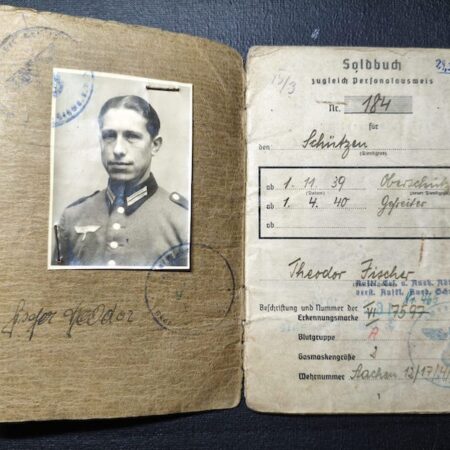 Soldbuch
zugleich Personalausweis
Nr. 184
für
den Schützen
(Dienstgrad)
ab 1. 11 39 Oberschütz
(Datum) (neuer Dienstgrad)
ab 1. 4. 40 Gefreiter
ab
Theodor Fischer
Beschriftung und Nummer der
Erkennungsmarke VI 7597
Blutgruppe A
Gasmaskengröße 2
Wehrnummer Aachen 12/17/4
1
Fischer Theodor